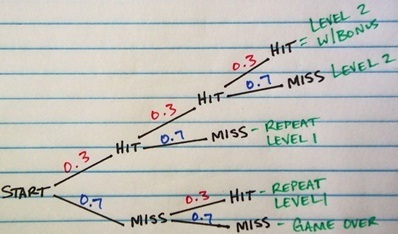 LEVEL 2
W/BONUS
HIT =
0.3
0.7
MISS LEVEL 2
0.3
HIT
0.7
MISS - REPEAT
LEVEL 1
0.3
HIT
START
0.7
0.3
HIT - REPEAT
LEVEL 1
MISS
0.7
MISS - GAME OVER